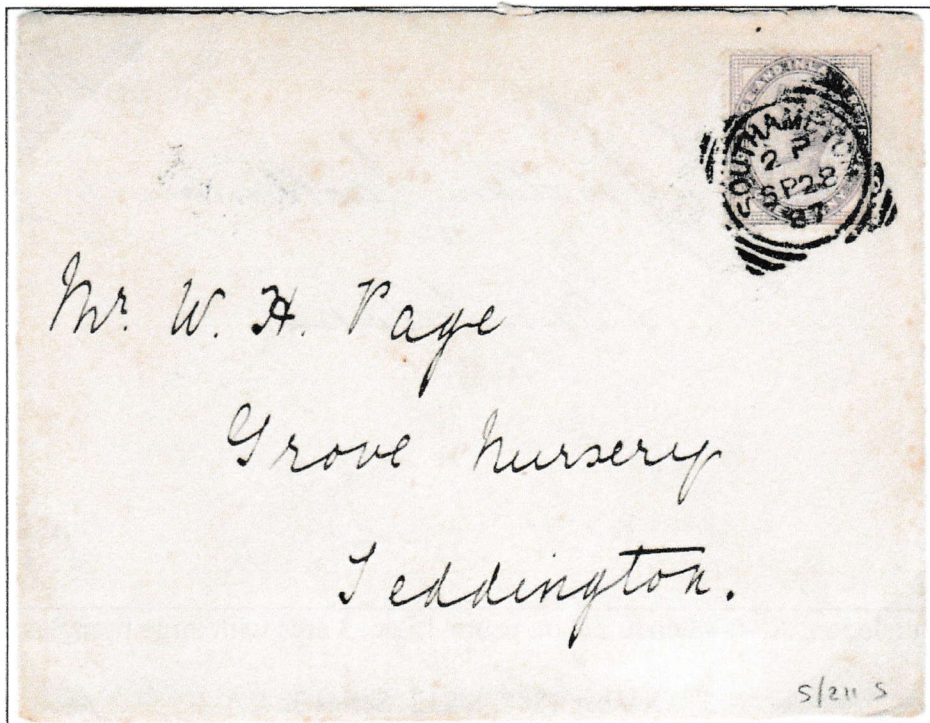 SOUTHAMPTON
2 P
SP 28
87
Mr. W. H. Page
Grove Nursery
Teddington.
S/211 S